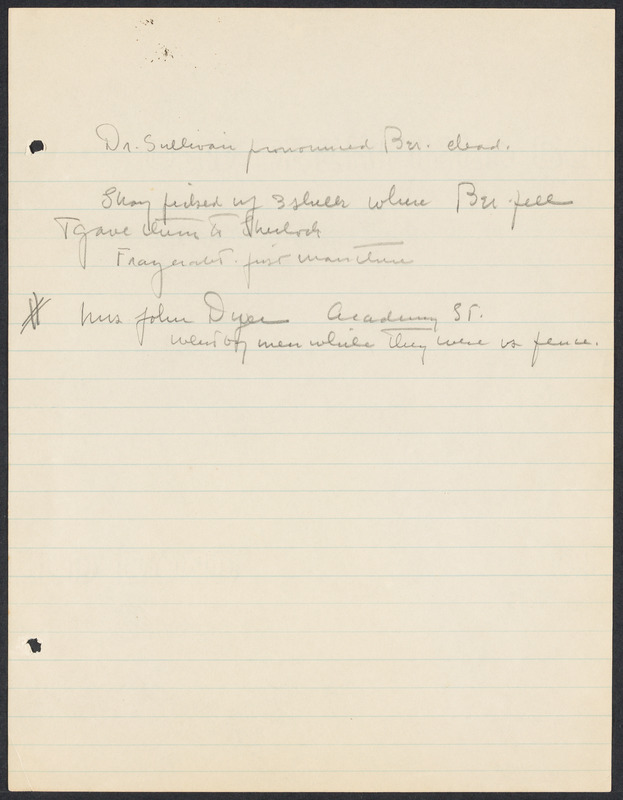 Dr. Sullivan pronounced Ber. dead.
Shay picked up 3 shells where Ber. fell
+ gave them to Sherlock
first man there
# Mrs John Dyer Academy St.
went by men while they were on fence.